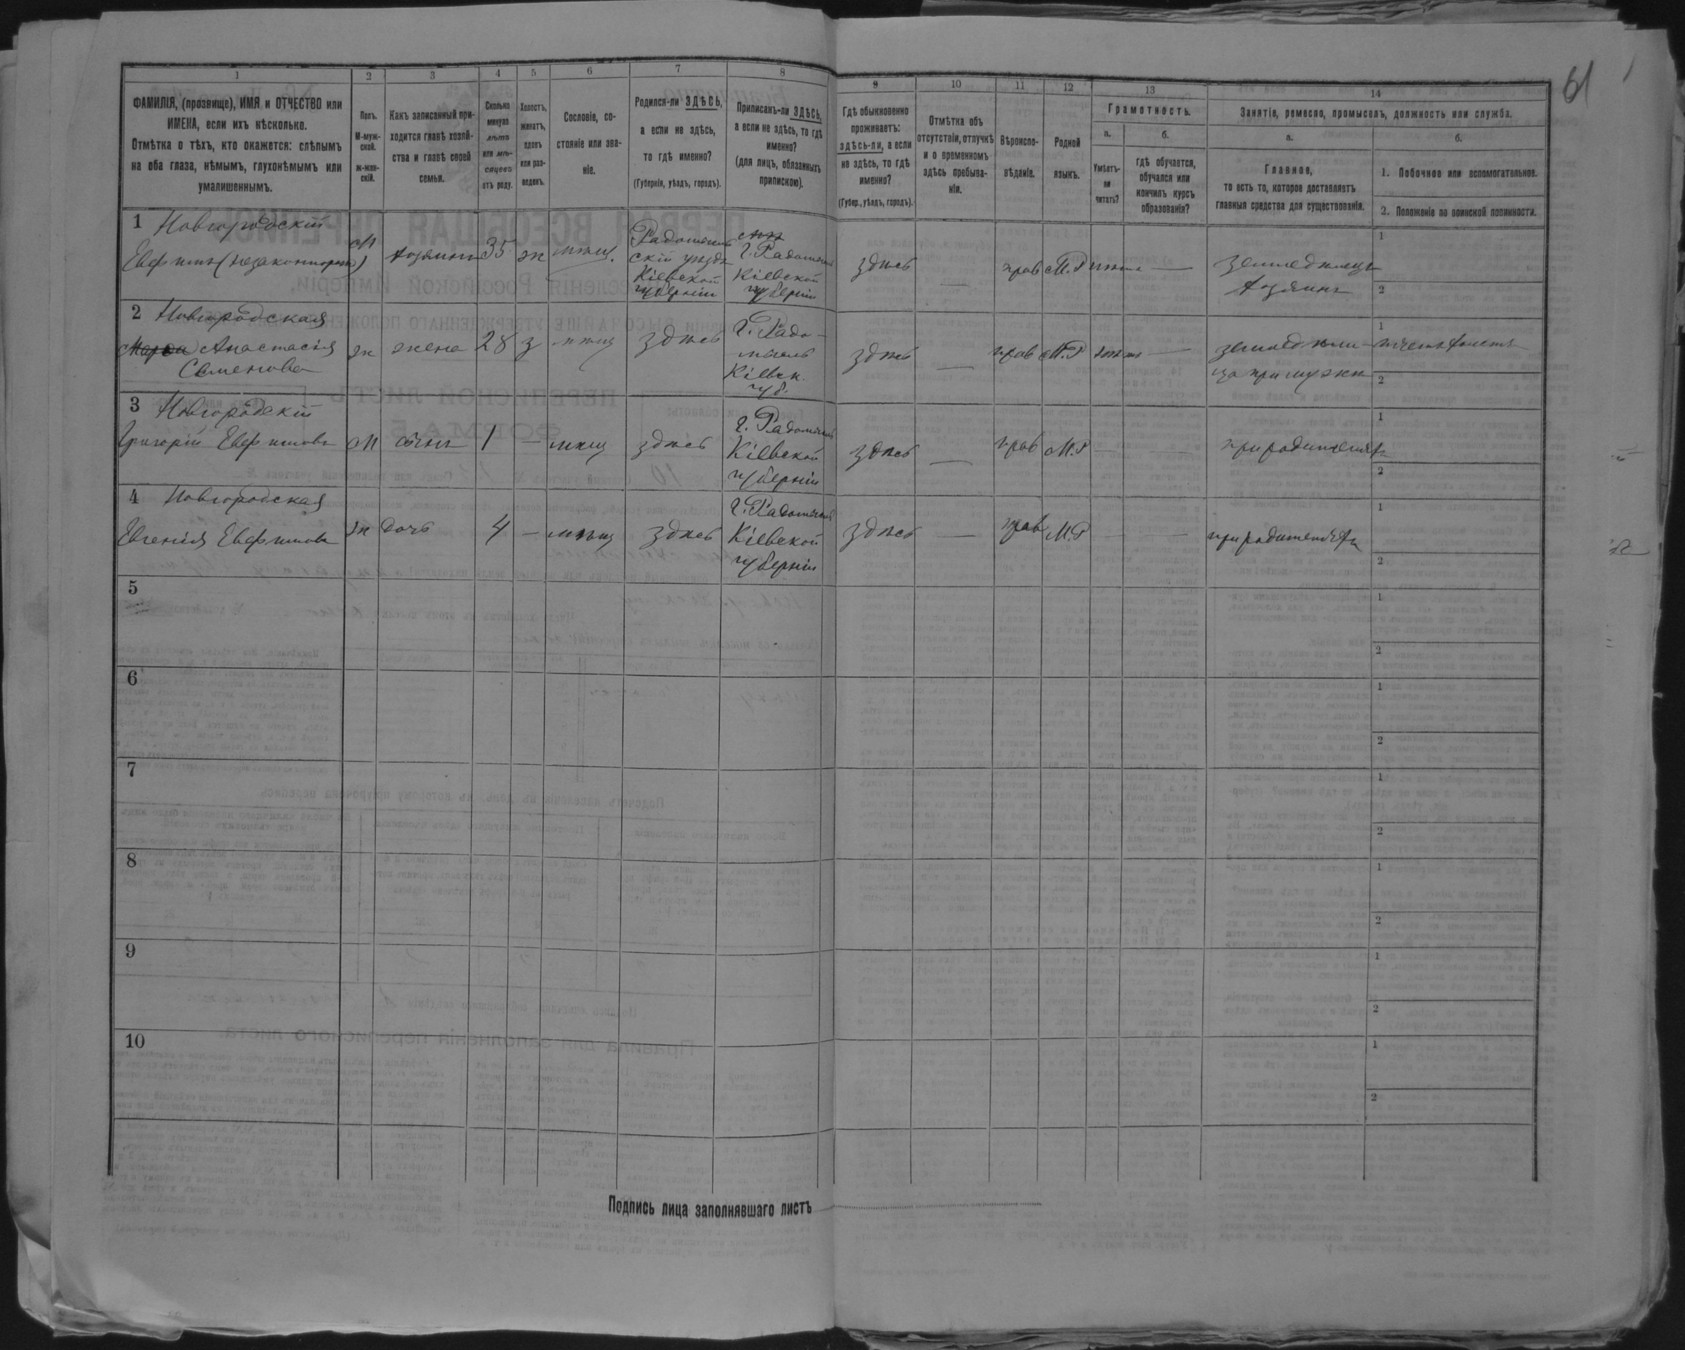 61
1 2 3 4 5 6 7 8 9 10 11 12 13 14
ФАМИЛІЯ, (прозвище), ИМЯ и ОТЧЕСТВО или
ИМЕНА, если ихъ нѣсколько.
Отмѣтка о тѣхъ, кто окажется: слѣпымъ
на оба глаза, нѣмымъ, глухонѣмымъ или
умалишеннымъ.
Полъ.
М-муж-
ской.
ж-жен-
скій.
Какъ записанный при-
ходится главѣ хозяй-
ства и главѣ своей
семьи.
Сколько
минуло
лѣтъ
или мѣ-
сяцевъ
отъ роду.
Холостъ,
женатъ,
вдовъ
или раз-
веденъ.
Сословіе, со-
стояніе или зва-
ніе.
Родился-ли ЗДѢСЬ,
а если не здѣсь,
то гдѣ именно?
(Губернія, уѣздъ, городъ).
Приписанъ-ли ЗДѢСЬ,
а если не здѣсь, то гдѣ
именно?
(для лицъ, обязанныхъ
припискою).
Гдѣ обыкновенно
проживаетъ:
здѣсь-ли, а если
не здѣсь, то гдѣ
именно?
(Губер., уѣздъ, городъ).
Отмѣтка объ
отсутствіи, отлучкѣ
и о временномъ
здѣсь пребыва-
ніи.
Вѣроиспо-
вѣданіе.
Родной
языкъ.
Грамотность.
а.
Умѣетъ-
ли
читать?
б.
гдѣ обучается,
обучался или
кончилъ курсъ
образованія?
Занятія, ремесло, промыселъ, должность или служба.
а.
Главное,
то есть то, которое доставляетъ
главныя средства для существованія.
б.
1. Побочное или вспомогательное.
2. Положеніе по воинской повинности.
1 Новгородскій
Евфимъ
М хозяинъ 35 ж мѣщ.
Радомысль
скій уѣздъ
Кіевской
губерніи
г. Радомысль
Кіевской
губерніи
здѣсь — прав М.Р —
земледѣлецъ
хозяинъ
1
2
2 Новгородская
Анастасія
Семенова
ж жена 28 з мѣщ здѣсь
г. Радо-
мысль
Кіевск.
губ.
здѣсь — прав М.Р —
земледѣли-
ца при мужѣ
1
2
3 Новгородскій
Григорій Евфимовъ
М сынъ 1 — мѣщ здѣсь
г. Радомысль
Кіевской
губерніи
здѣсь — прав М.Р — —
при родителяхъ
1
2
4 Новгородская
Евгенія Евфимова
ж дочь 4 — мѣщ здѣсь
г. Радомысль
Кіевской
губерніи
здѣсь — прав М.Р — —
при родителяхъ
1
2
5
1
2
6
1
2
7
1
2
8
1
2
9
1
2
10
1
2
Подпись лица заполнявшаго листъ